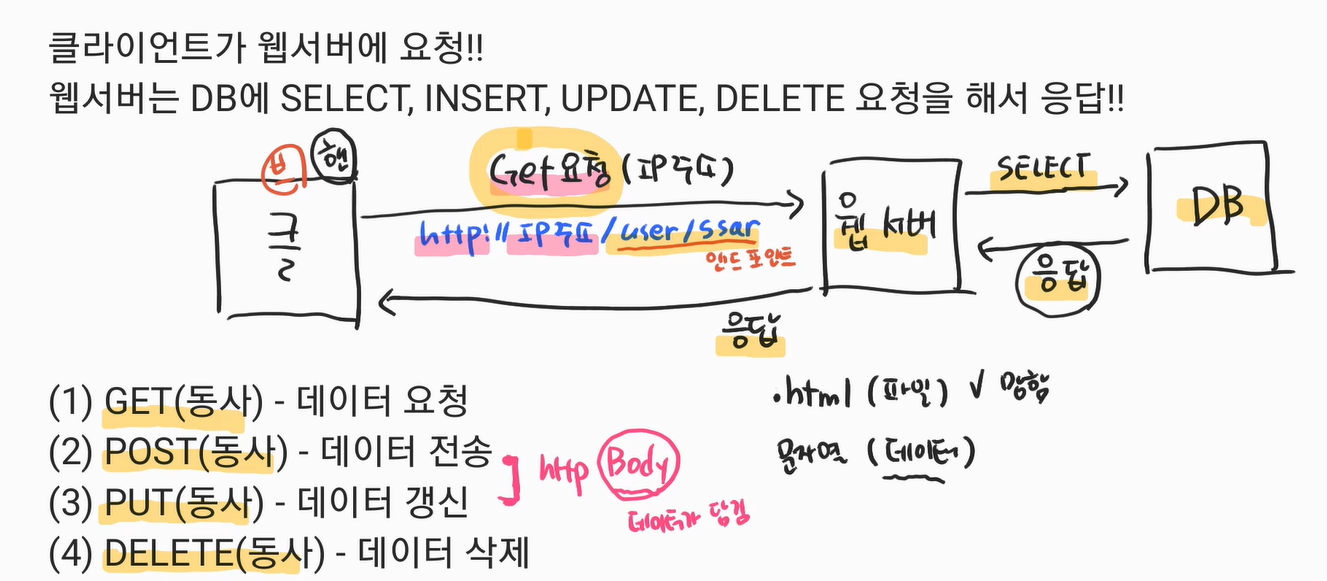 클라이언트가 웹서버에 요청!!
웹서버는 DB에 SELECT, INSERT, UPDATE, DELETE 요청을 해서 응답!!
브 핸
클라
Get요청 (IP주소)
http:// IP주소 /user/ssar
엔드포인트
웹 서버
SELECT
응답
DB
응답
(1) GET(동사) - 데이터 요청
(2) POST(동사) - 데이터 전송
(3) PUT(동사) - 데이터 갱신
(4) DELETE(동사) - 데이터 삭제
http Body
데이터가 담김
.html (파일) √ 망함
문자열 (데이터)